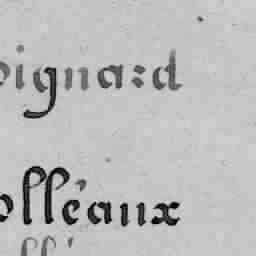 oignard
olléaux